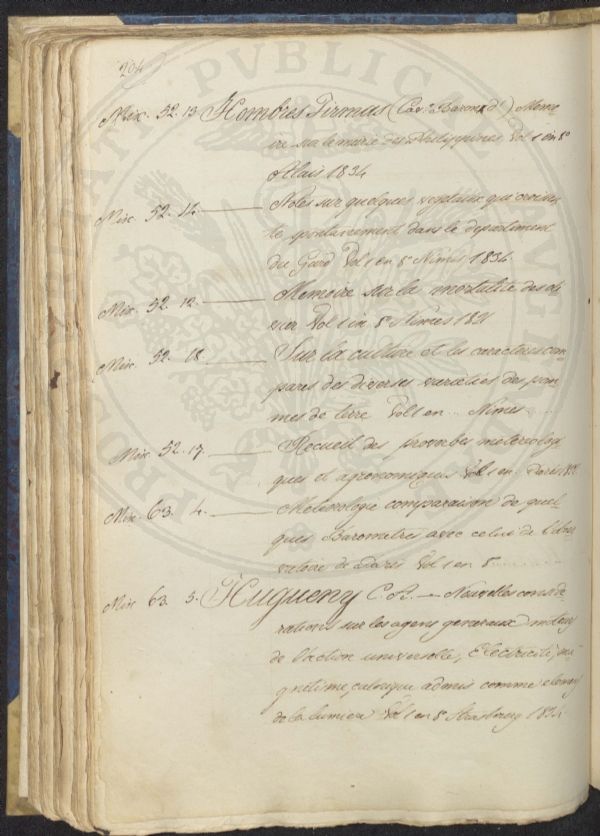 204
Misc. 52. 13 Hombres Firmas (Cav.e Baron d') Memo-
ire sur la murie des Philippines Vol 1 in 8°
Alais 1834
Misc. 52. 14. ——— Notes sur quelques que
te spontanement dans le departiment
du Gard Vol 1 en 8° Nimes 1834
Misc. 52. 12. ——— Memoire sur la mortalité des
Vol 1 in 8° Nimes 1821
Misc. 52. 18. ——— Sur la culture et les caracteres com-
pares des diverses varieties des pom-
mes de terre Vol 1 en .. Nimes
Misc. 52. 17. ——— Recueil des proverbes meteorologi-
ques et agronomiques Vol 1 en Paris
Misc. 63. 4. ——— comparaison de quel-
ques Barometres avec celui de l'obser-
vatoire de Paris Vol 1 en 8°
Misc. 63. 5. Hugueny C. A. — Nouvelles conside-
rations sur les agens generaux moteurs
de l'action universelle, Electricité, ma-
gnetisme, calorique admis comme
de la lumiere Vol 1 en 8° Strasbourg
PUBLICA